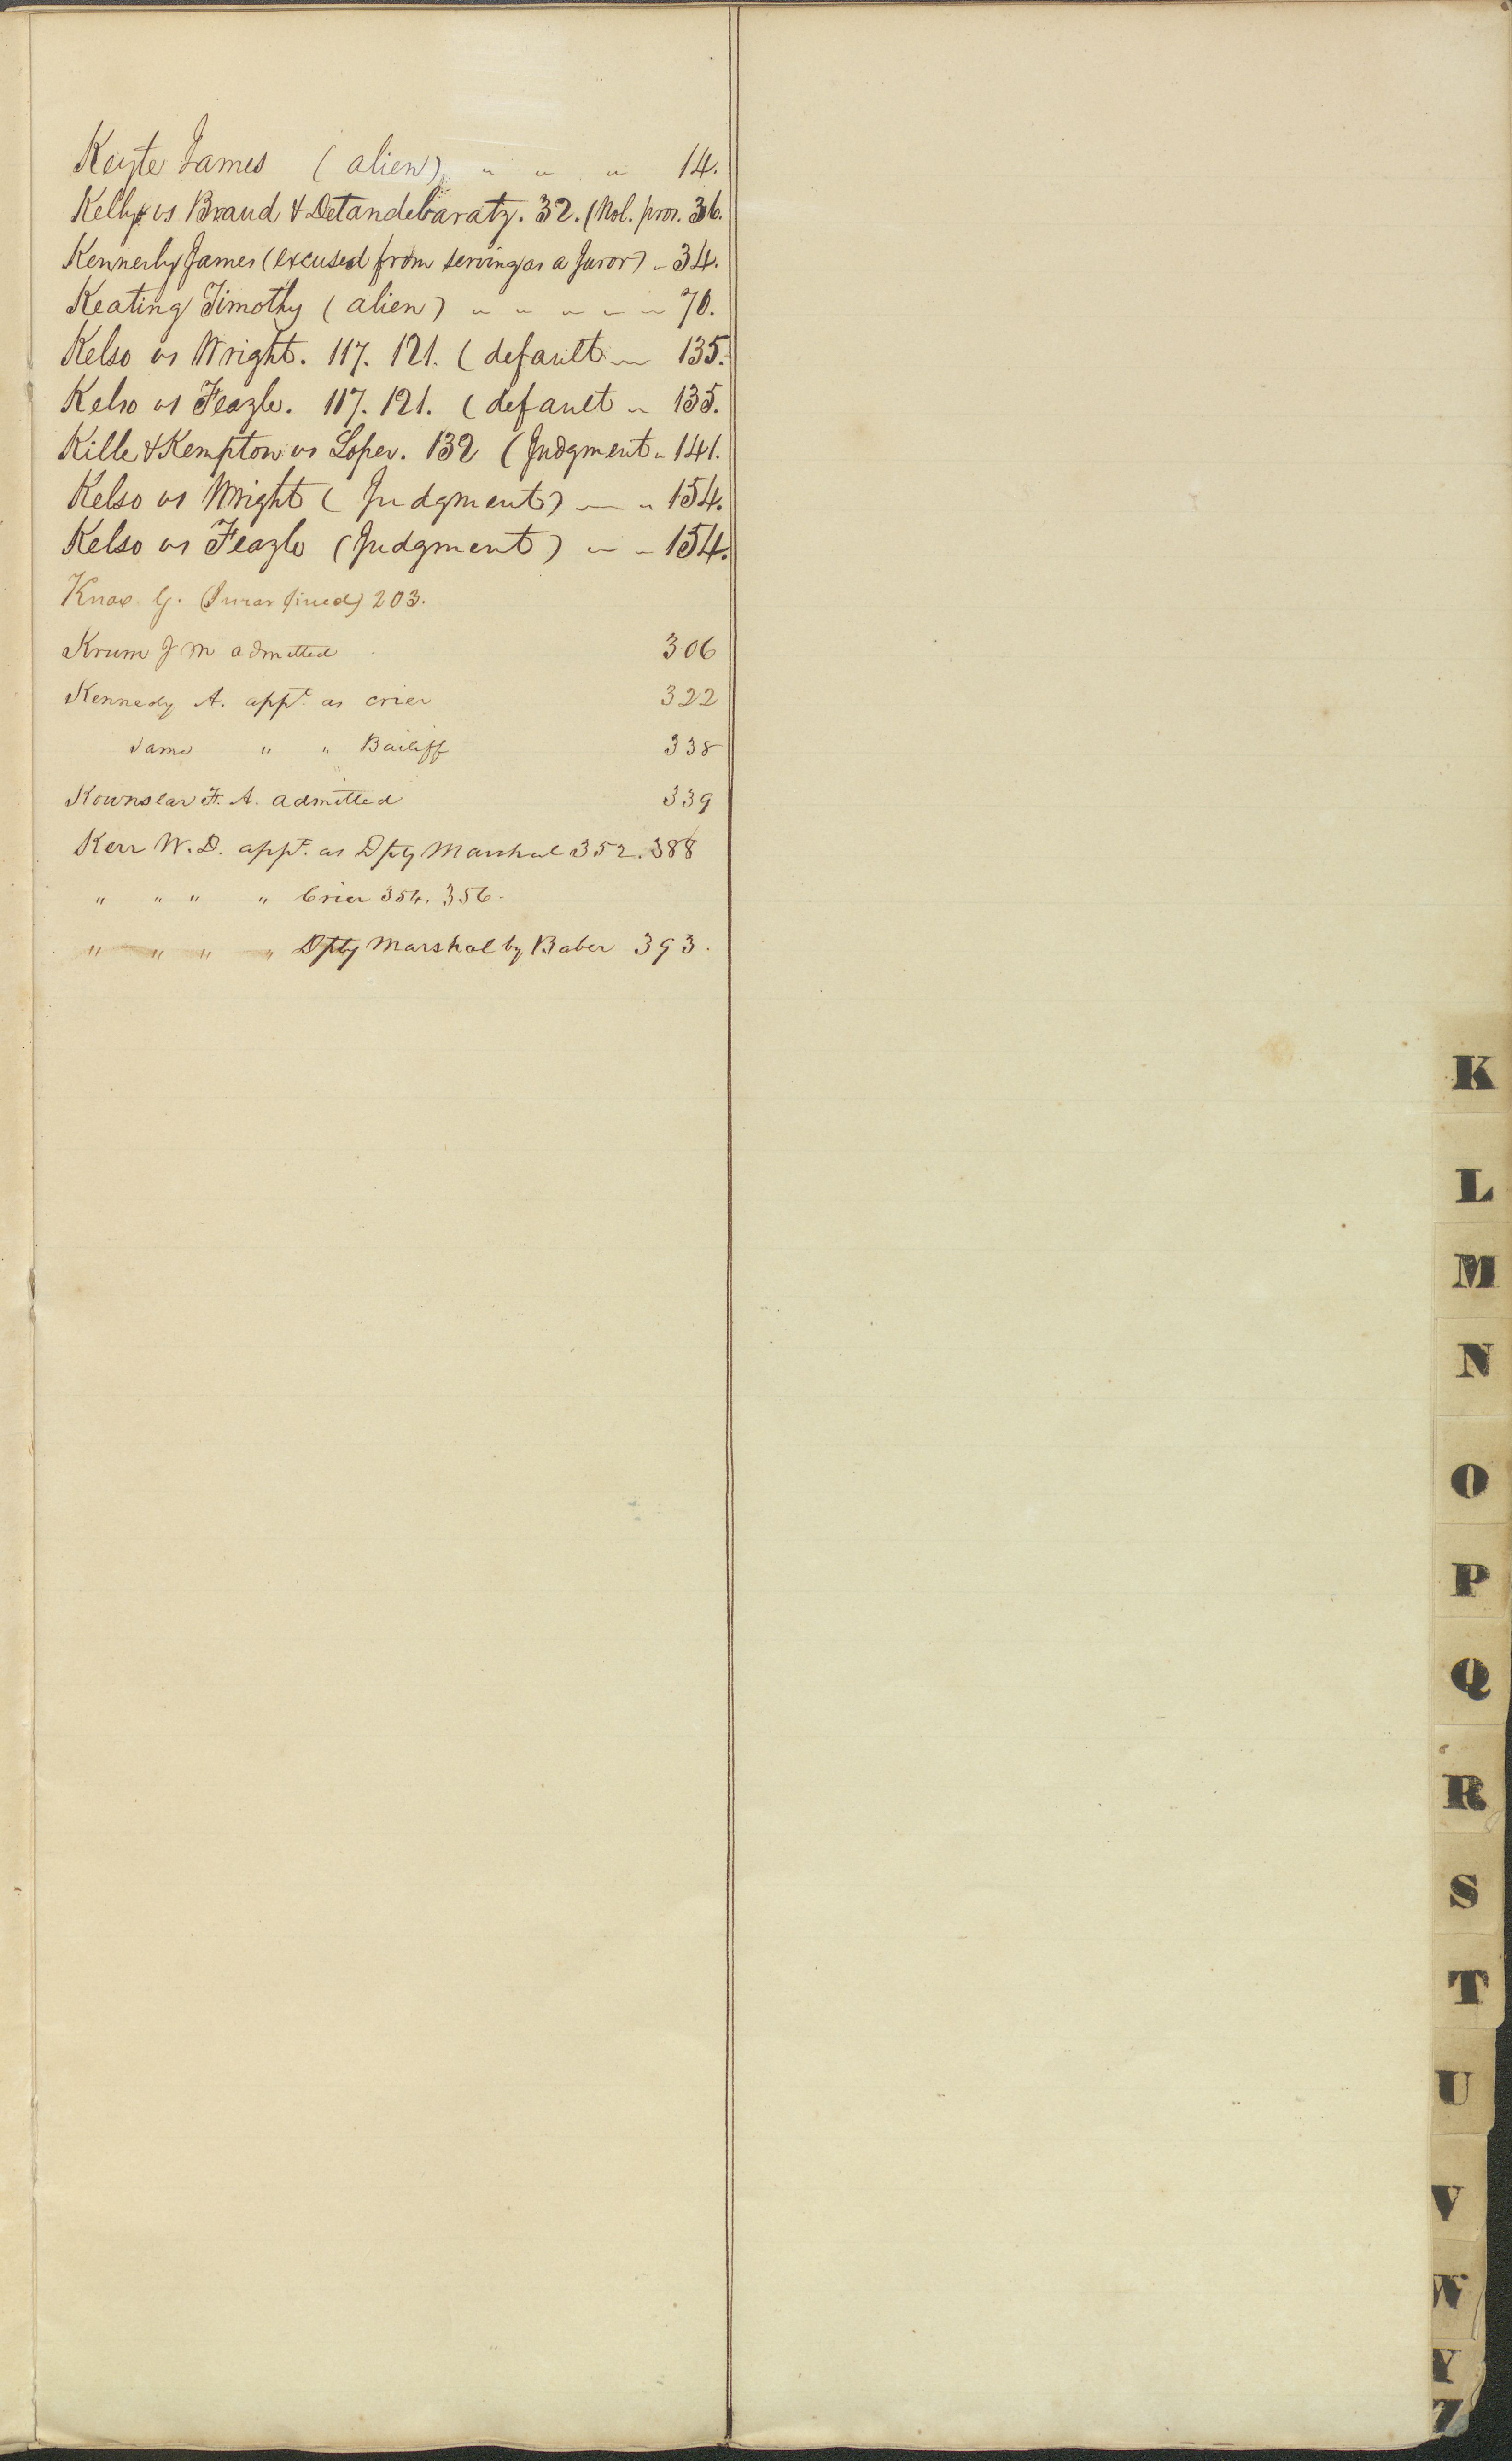 Keyte James (alien) " " " 14.
Kelly vs Braud & Detandebaratz. 32. (Nol. pros. 36.
Kennerly James (excused from serving as a Juror) " 34.
Keating Timothy (alien) " " " " " 70.
Kelso vs Wright. 117. 121. (default " 135.
Kelso vs Feazle. 117. 121. (default " 135.
Kille & Kempton vs Loper. 132 (Judgment " 141.
Kelso vs Wright (Judgment) " " 154.
Kelso vs Feazle (Judgment) " " 154.
Knox G. (Juror fined) 203.
Krum J M admitted 306
Kennedy A. appt. as crier 322
Same " " Bailiff 338
Kownslar F. A. admitted 339
Kerr W. D. appt. as Dpty Marshal 352. 388
" " " " Crier 354. 356.
" " " " Dpty Marshal by Baber 393.
K
L
M
N
O
P
Q
R
S
T
U
V
W
Y
Z